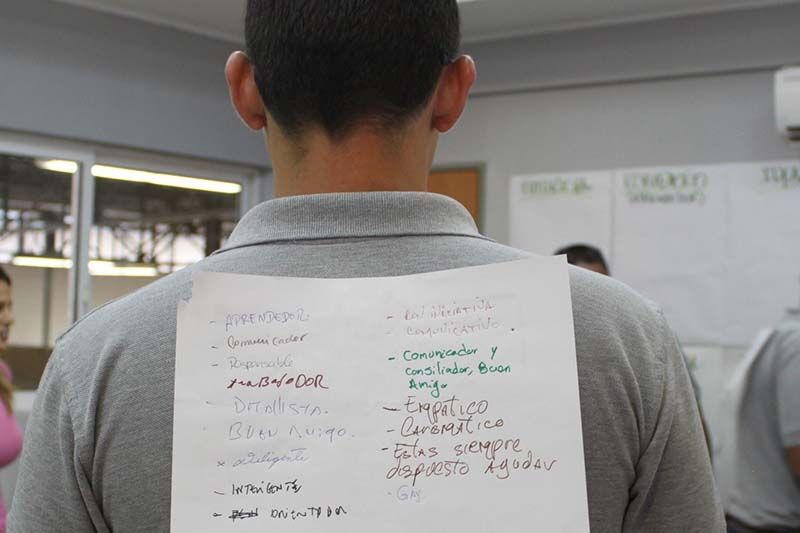 - APRENDEDOR.
- Comunicador
- Responsable
trabajaDOR
- DTALLISTA.
- BUEN AMIGO.
x inteligente
- INTELIGENTE
- ORIENTADOR
- CON INICIATIVA
- COMUNICATIVO.
- Comunicador y
consiliador, Buen
Amigo
- Empatico
- Carismatico
- Estas siempre
dispuesto Ayudar
- GAY